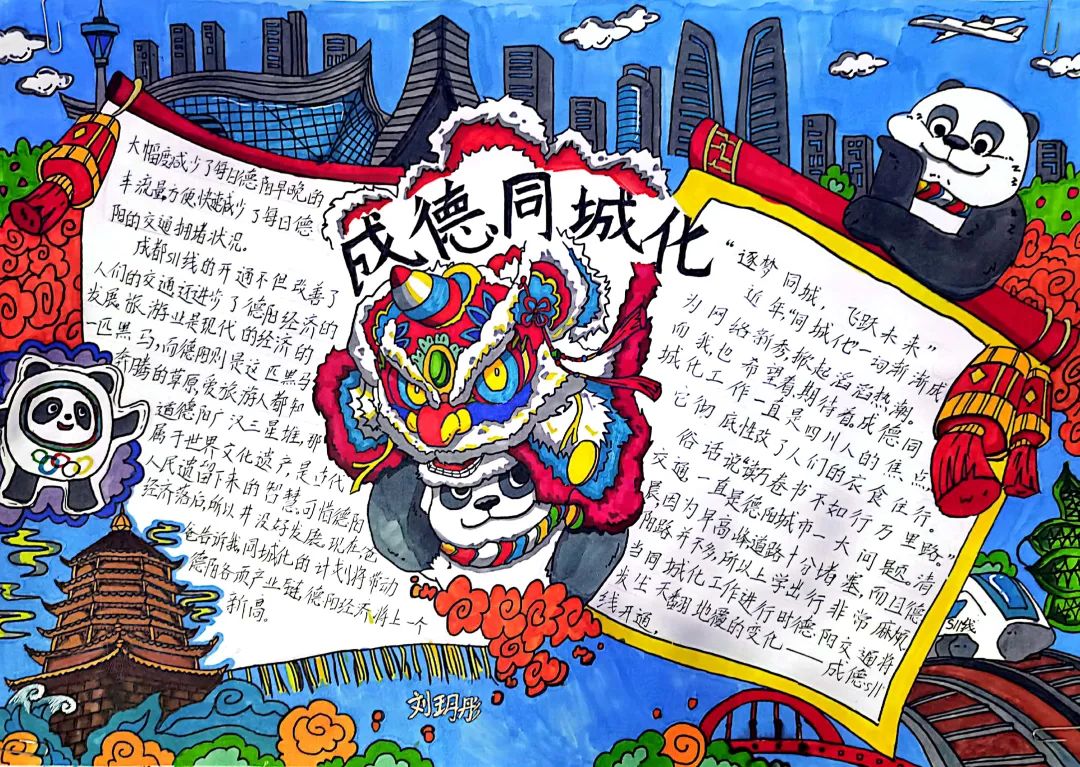 成德同城化
“逐梦同城，飞跃未来”
近年“同城化一词渐渐成
为网络新秀，掀起滔滔热潮。
而我，也希望着，期待着，成德同
城化工作一直是四川人的焦点
它彻底性改了人们的衣食住行。
俗话说“读万卷书不如行万里路。”
交通一直是德阳城市一大问题。清
晨因为早高峰道路十分堵塞，而旧德
阳路并不多，所以上学出行非常麻烦，
当同城化工作进行时德阳交通将
发生天翻地覆的变化——成德S11
线开通，
大幅度减少了每日德阳早晚的
车流量，方便、快速减少了每日德
阳的交通拥堵状况。
成都S11线的开通不但改善了
人们的交通还进步了德阳经济的
发展旅游业是现代的经济的
一匹黑马，而德阳则是这匹黑马
奔腾的草原爱旅游人都知
道德阳广汉三星堆，那
属于世界文化遗产，是古代
人民遗留下来的智慧，可惜德阳
经济落后，所以并没好发展，现在爸
爸告诉我同城化的计划将带动
德阳各项产业链，德阳经济将上一个
新高。
S11线
刘玥彤